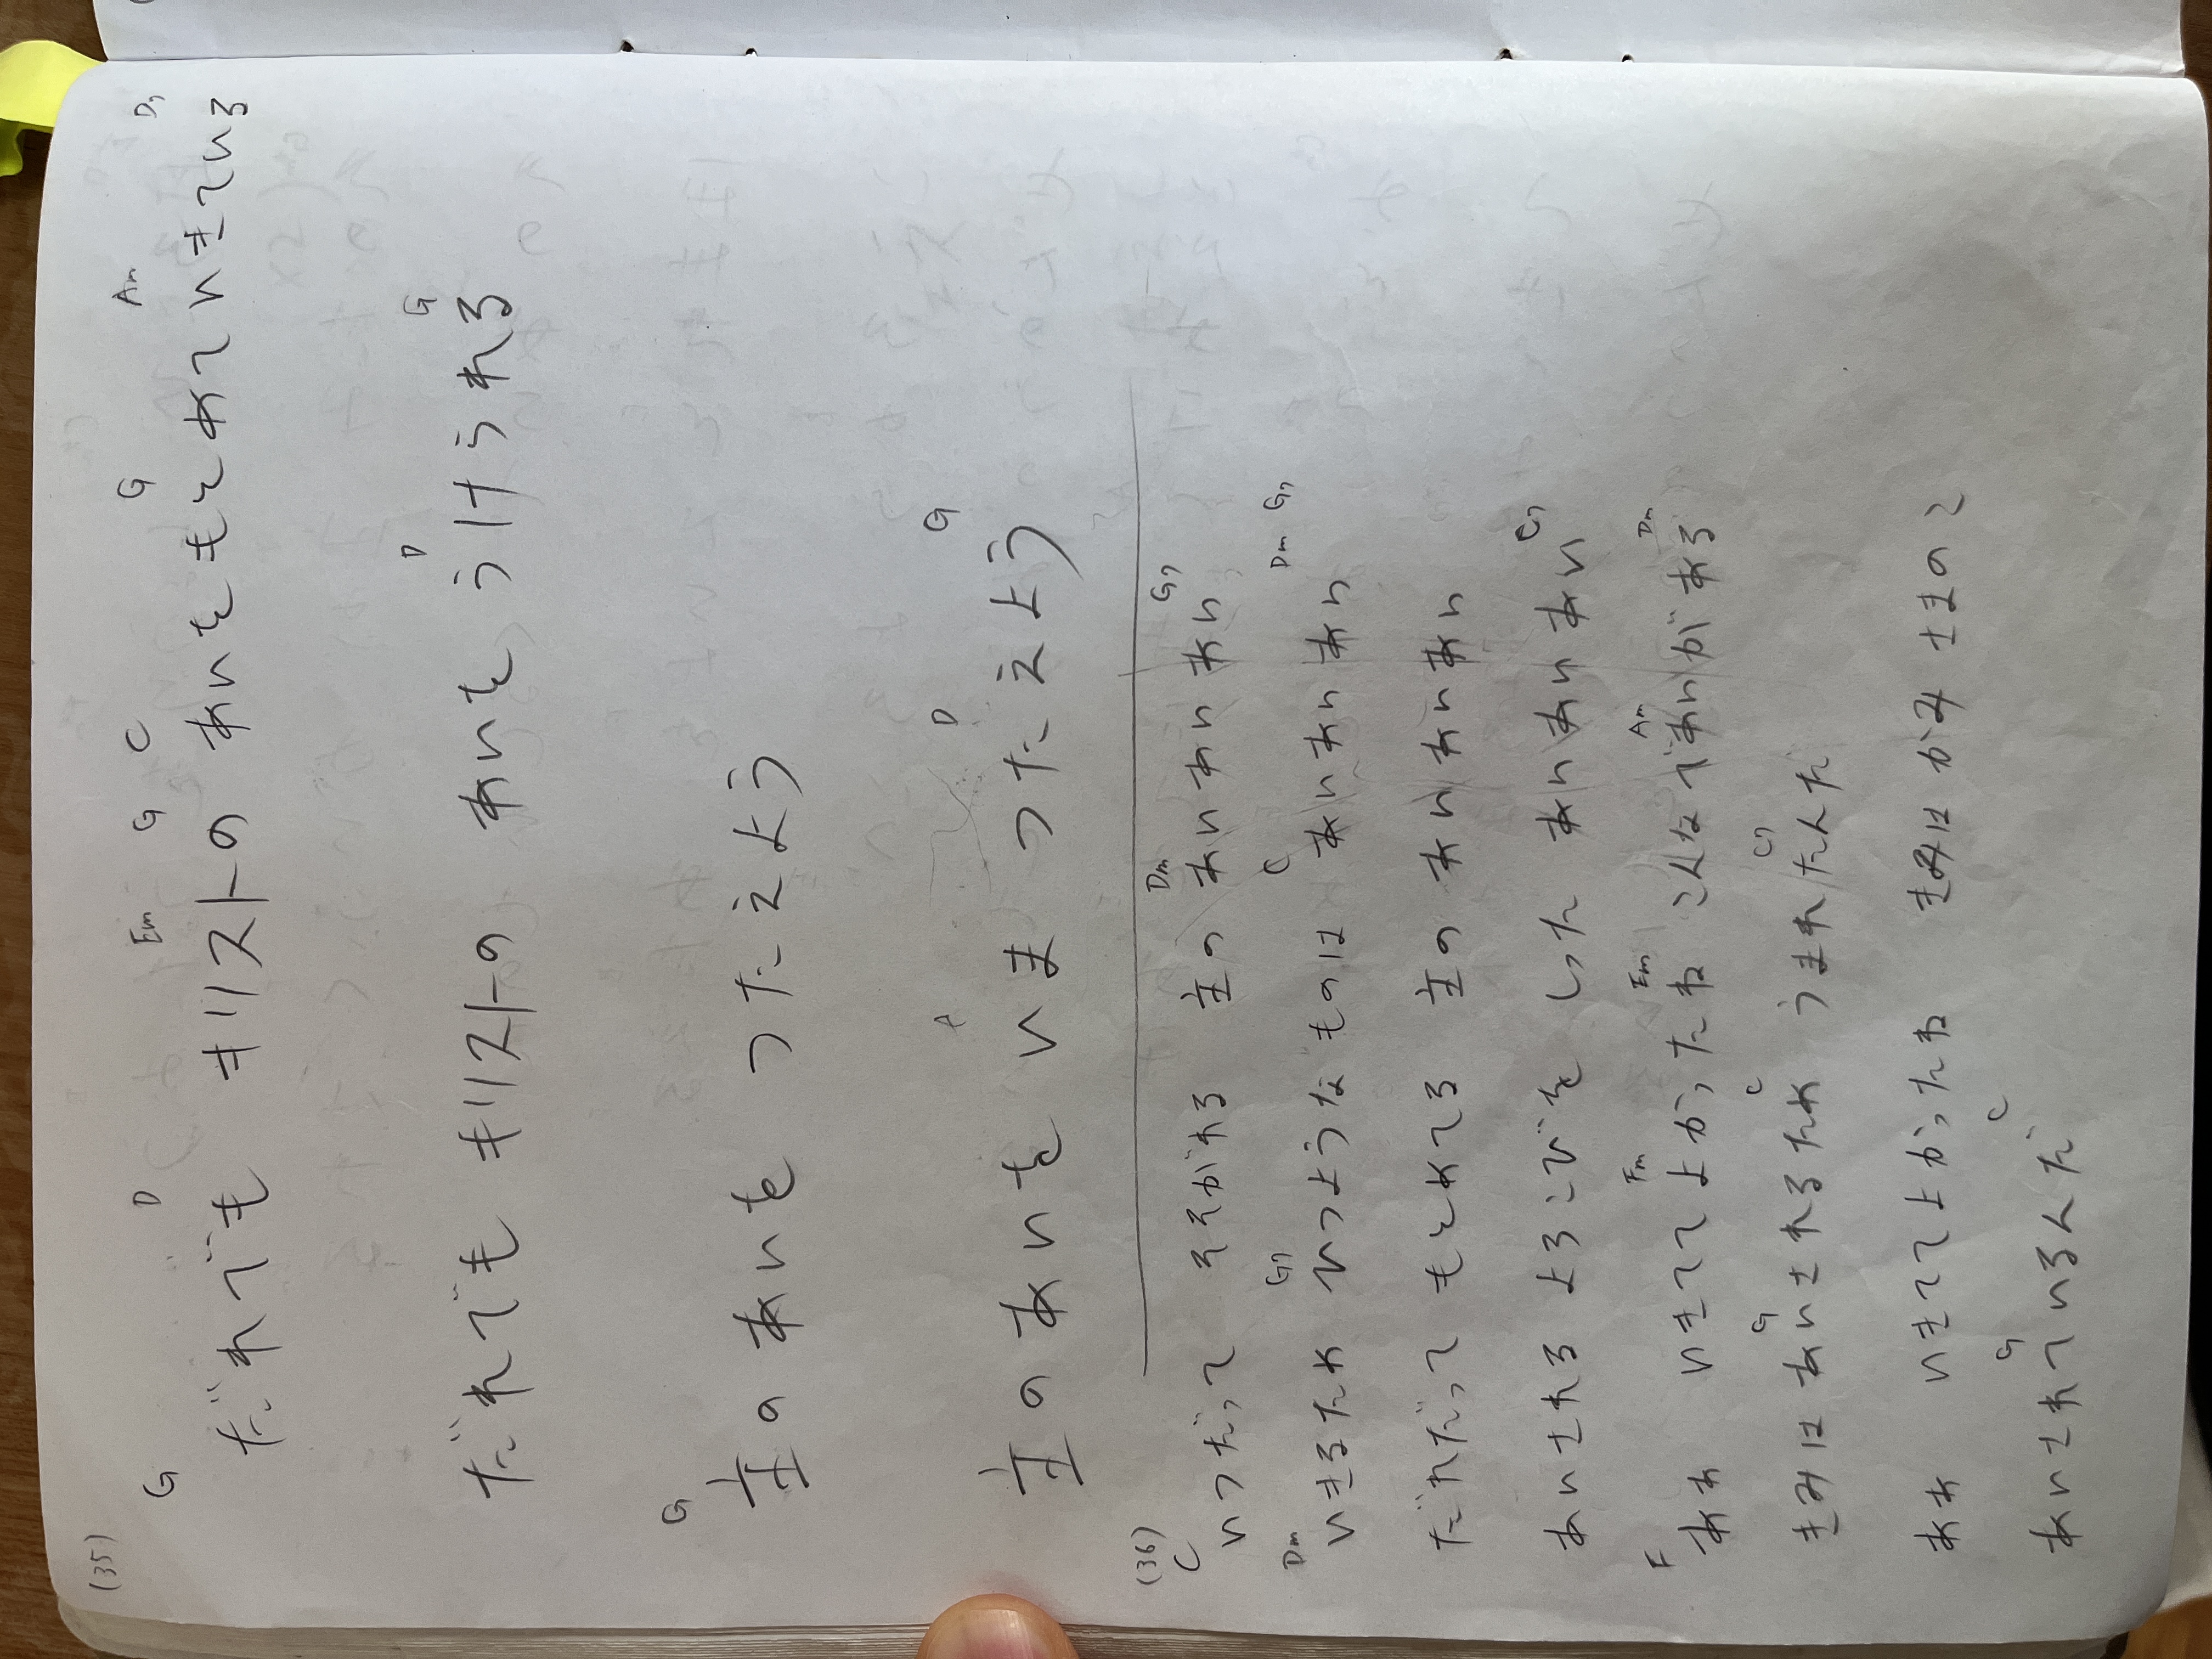 (35)
G D Em G C G Am D7
だれでも キリストの あいをもとめていきている
D G
だれでも キリストの あいをうけられる
G
主のあいを つたえよう
A D G
主のあいを いま つたえよう
(36)
C Dm G7
いつだって そそがれる 主の あいあいあい
Dm G7 C Dm G7
いきるため ひつようなものは あいあいあい
だれだって もとめてる 主の あいあいあい
C7
あいされる よろこびを しった あいあいあい
F Fm Em Am Dm
ああ いきててよかったね こんなであいがある
G C C7
きみは あいされるため うまれたんだ
ああ いきててよかったね きみは かみさまのこ
G C
あいされているんだ